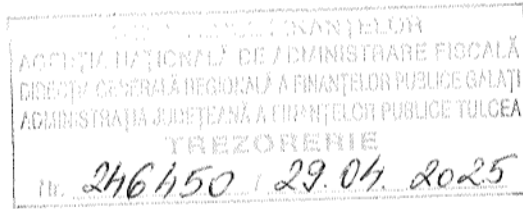 FINANȚELOR
AGENȚIA NAȚIONALĂ DE ADMINISTRARE FISCALĂ
DIRECȚIA GENERALĂ REGIONALĂ A FINANȚELOR PUBLICE GALAȚI
ADMINISTRAȚIA JUDEȚEANĂ A FINANȚELOR PUBLICE TULCEA
TREZORERIE
Nr. 246450 / 29.04.2025